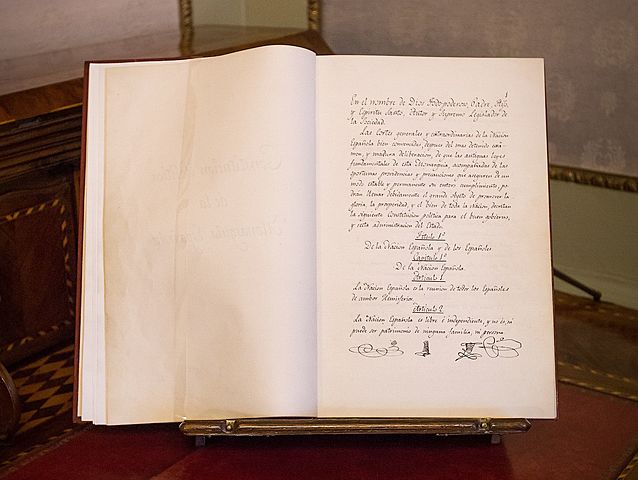 1
En el nombre de Dios Todopoderoso, Padre, Hijo,
y Espiritu Santo, Autor y Supremo Legislador de
la Sociedad.
Las Cortes generales y extraordinarias de la Nacion
Española bien convencidas, despues del mas detenido exâ-
men, y madura deliberacion, de que las antiguas leyes
fundamentales de esta Monarquia, acompañadas de las
oportunas providencias y precauciones que aseguren de un
modo estable y permanente su entero cumplimiento, po-
drán llenar debidamente el grande objeto de promover la
gloria, la prosperidad, y el bien de toda la Nacion, decretan
la siguiente Constitucion politica para el buen gobierno,
y recta administracion del Estado.
Titulo 1º
De la Nacion Española y de los Españoles.
Capitulo 1º
De la Nacion Española.
Articulo 1
La Nacion Española es la reunion de todos los Españoles
de ambos Hemisferios.
Articulo 2
La Nacion Española es libre é independiente, y no es, ni
puede ser patrimonio de ninguna familia, ni persona